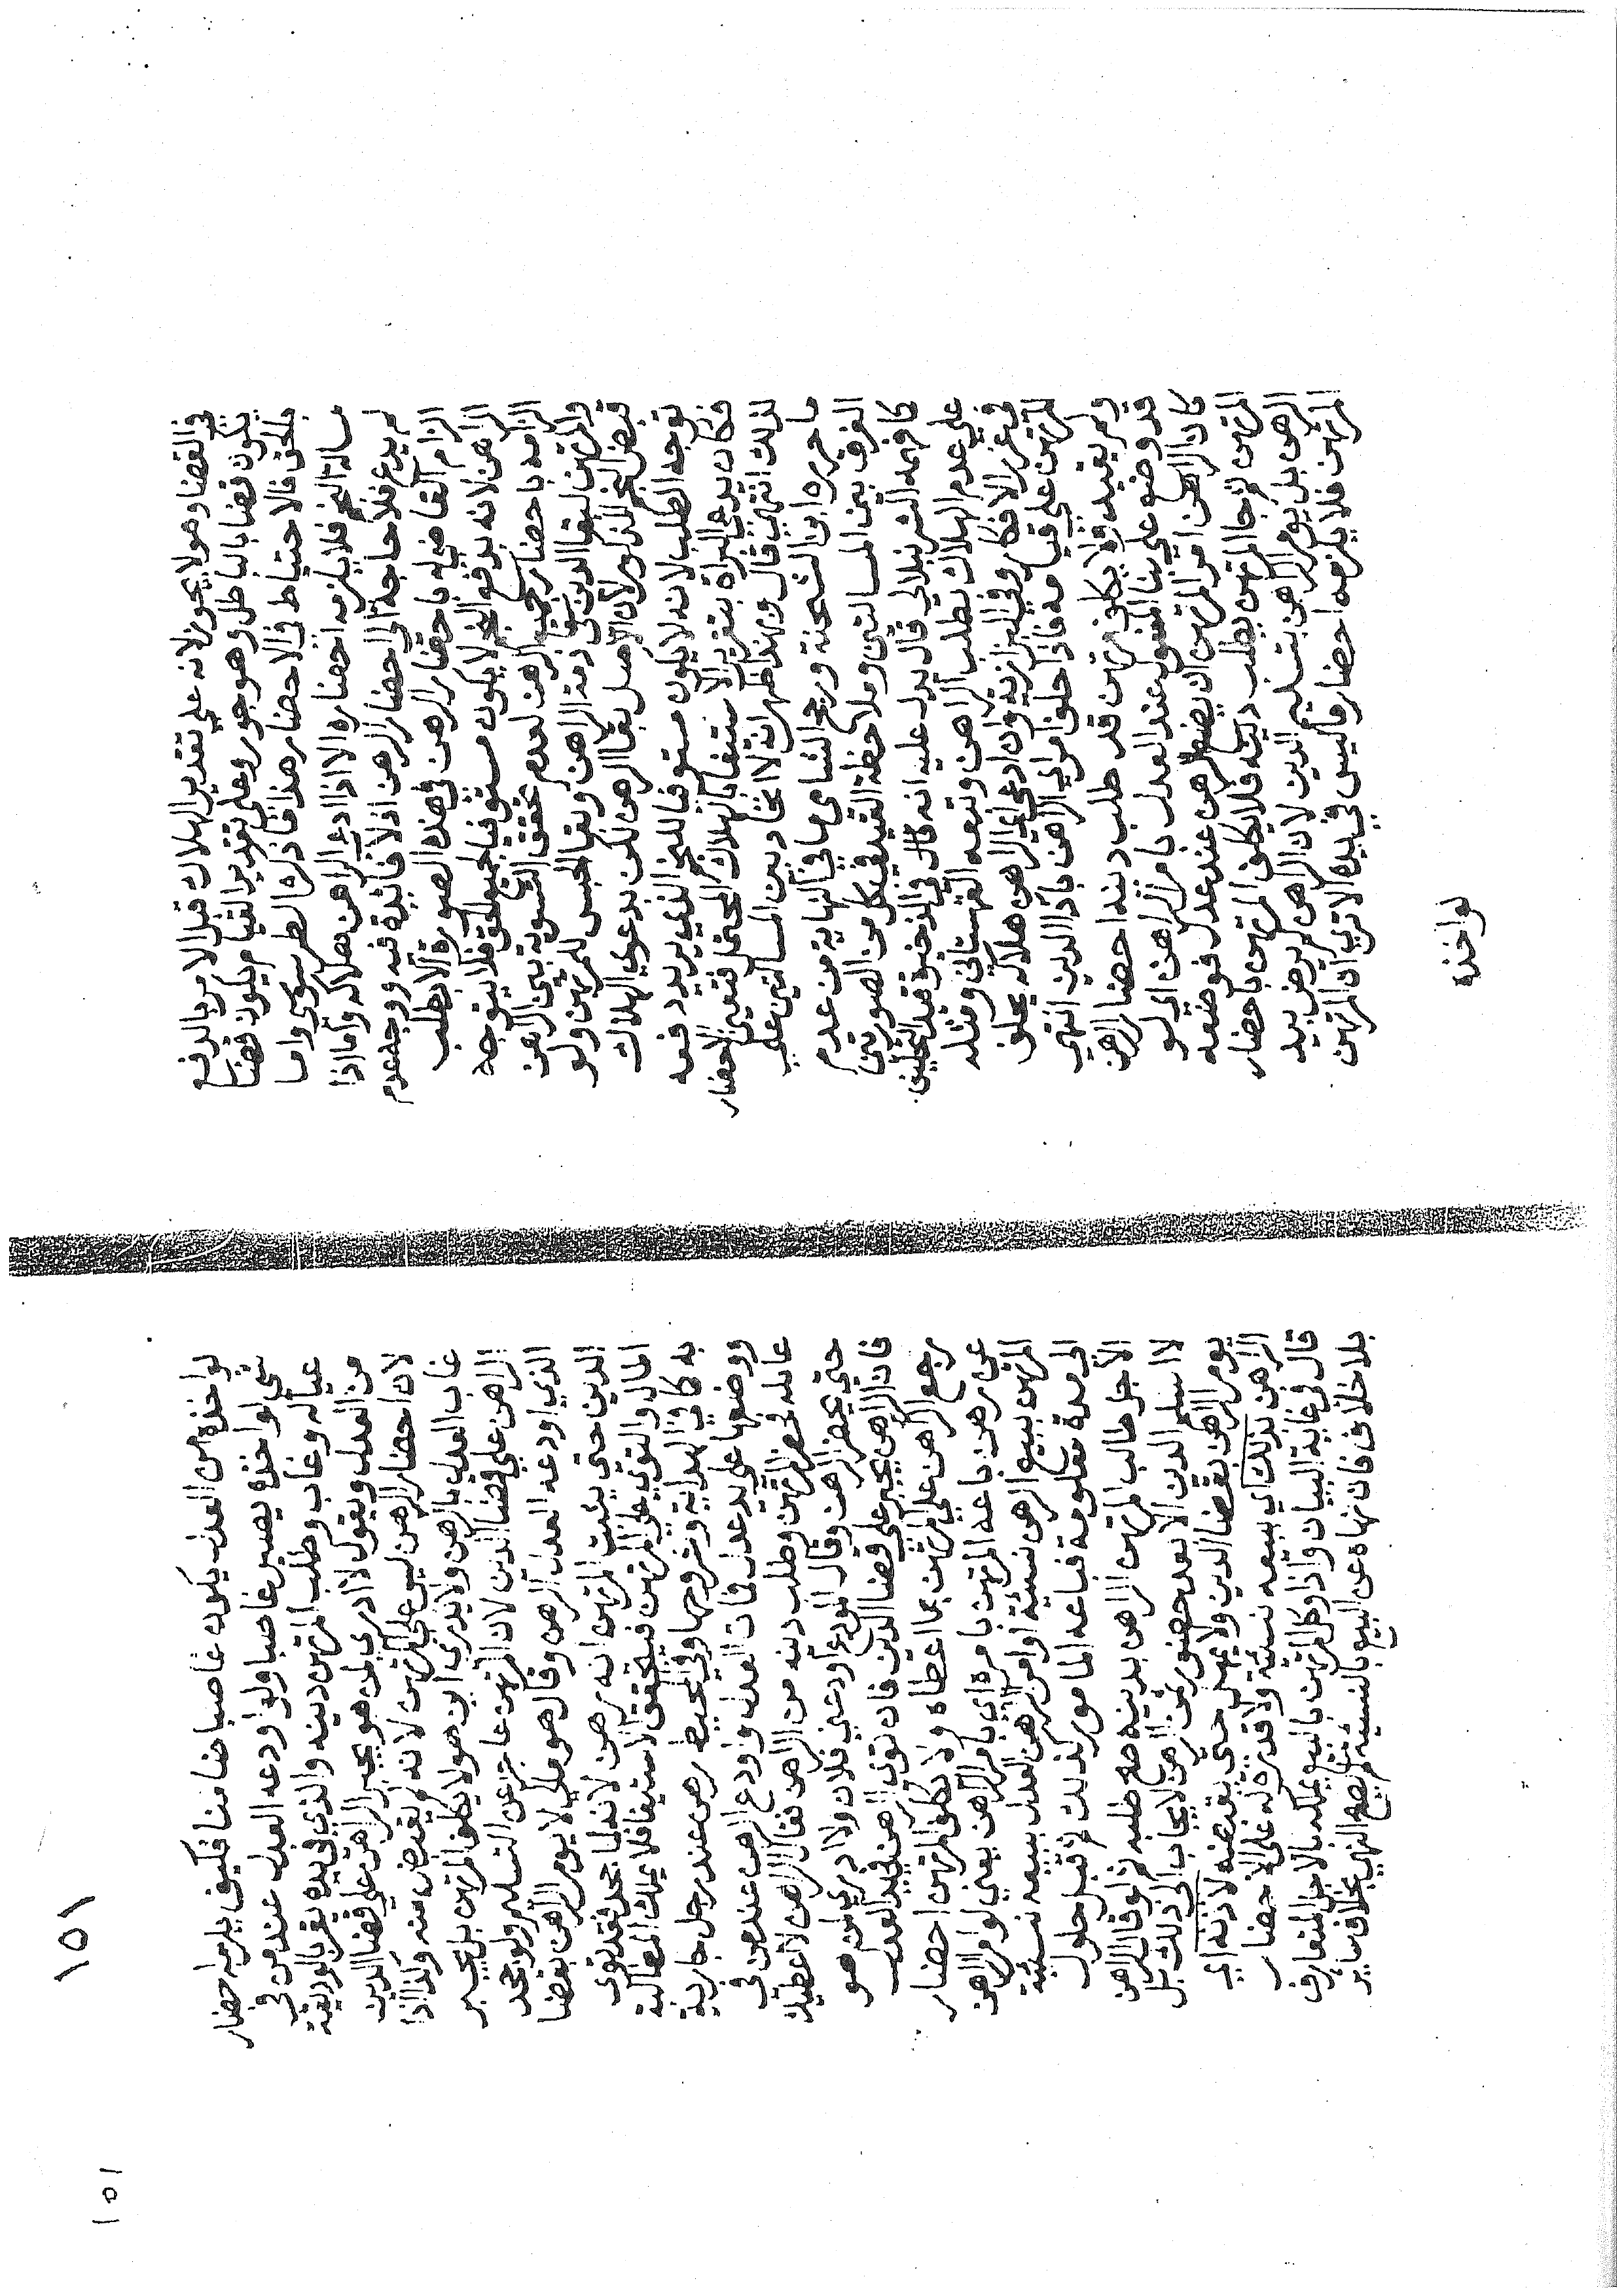 في القضا وهو لا يجوز لانه علي تقدير الهلاك قبل الامر بالدفع
يكون قضا بالباطل وهو جور وعلى تقدير القيام يكون قضا
بالحق فالاحتياط في الاحضار هذا ما ذكره الطرسوسي واما
مسالة النجم فلا يلزمه احضاره الا اذا ادعى الراهن هلاكه واما اذا
لم يدع فلا حاجة الي احضار الرهن اذ لا فائدة فيه ووجه عدم
الزام القاضي له باحضار الرهن في هذه الصورة الا بطلب
الراهن لانه بدفع النجم لا يكون مستوفيا جميع الحق فلا يتوجه
الزامه باحضار جميع الرهن لعدم تحقق التسوية بين الراهن
والمرتهن لبقا الدين في ذمة الراهن وبقا الحبس للمرتهن ولو
قبض النجم المذكور لان الاصل بقا الرهن لكن بدعوي الهلاك
توجه الطلب لانه لا يكون مستوفيا للنجم الذي يريد دفعه
فكان يدعى البراة بتقرير الاستيفا بالهلاك المحتمل فتعين الاحضار
لذلك انتهى قال وبهذا ظهر انه لا اتحاد بين المسالتين علي
ما حرره ابن الشحنة ورجح الشامي ما في النهاية من عدم
الفرق بين المسالتين وملاحظة القيد في كل من الصورتين
كما فهمه الشرنبلالي قال يدل عليه انه قال في الذخيرة قيد التحليف
علي عدم الهلاك بطلب الراهن وتبعه القهستاني ومثله
في غرر الافكار وفي البزازية وان ادعى اي الراهن هلاكه يحلف
المرتهن علي قيامه فاذا حلف امر اي الراهن باداء الدين انتهى
ولم يقيد ولا يكلف مرتهن قد طلب دينه احضار الرهن
قد وضع علي بنا المفعول عند العدل بامر الراهن اي لو
كان الراهن امر المرتهن ان يضع الرهن عند عدل فوضعه
المرتهن ثم جا المرتهن يطلب دينه فلا يكلف المرتهن باحضار
الرهن بل يؤمر الراهن بتسليم الدين لان الراهن لم يرض بيد
المرتهن فلا يلزمه احضار ما ليس في يده الا تري ان المرتهن
لو اخذه
١٥١
١٥١
لو اخذه من العدل يكون غاصبا ضامنا فكيف يلزمه احضار
شي لو اخذه يصير غاصبا ولو اودعه العدل عند من في
عياله وغاب وطلب المرتهن دينه والذي في يده يقر بالوديعة
من العدل ويقول لا ادري لمن هو يجبر الراهن علي قضا الدين
لان احضار الرهن ليس علي المرتهن لانه لم يقبض منه ولذا اذا
غاب العدل بالرهن ولا يدري اين هو لا يكلف المرتهن بل يجبر
الراهن علي قضا الدين لان المرتهن عاجز عن التسليم ولو جحد
الذي اودعه العدل الرهن وقال هو ملكي لا يؤمر الراهن بقضا
الدين حتي يثبت المرتهن انه رهن لانه لما جحد فقد توى
المال والتوي علي المرتهن فيتحقق الاستيفا فلا يملك المطالبة
به كما في الهداية وشروحها وفي المحيط رهن عند رجل جارية
ووضعها علي يد عدل فمات العدل واودع الرهن عند من في
عياله فحضر المرتهن وطلب دينه من الراهن فقال الراهن لا اعطيك
حتي يحضر الرهن وقال المودع اودعني فلان ولا ادري لمن هو
فان الراهن يجبر علي قضا الدين فان توى الرهن في يد العدل
رجع الراهن علي المرتهن بما اعطاه ولا يكلف المرتهن احضار
ثمن رهن باعه المرتهن بامره اي بامر الراهن يعني لو امر الراهن
المرتهن ببيع الرهن نسيئة او امر الراهن العدل ببيعه نسيئة
الى مدة معلومة فباعه المامور كذلك ثم قبل حلول
الاجل طالب المرتهن الراهن بدينه صح طلبه ثم لو قال الراهن
لا اسلم الدين الا بعد حضور ثمن الرهن لا يجاب الى ذلك بل
يؤمر الراهن بقضا الدين ولا يمهل حتي يقبضه لاذنه اي
الراهن بذلك اي ببيعه نسيئة ولا قدرة له علي الاحضار
قال في غاية البيان واذا وكل المرتهن بالبيع يملكه بالاجل المتعارف
بلا خلاف فان نهاه عن البيع بالنسيئة لم يصح النهي بخلاف ساير